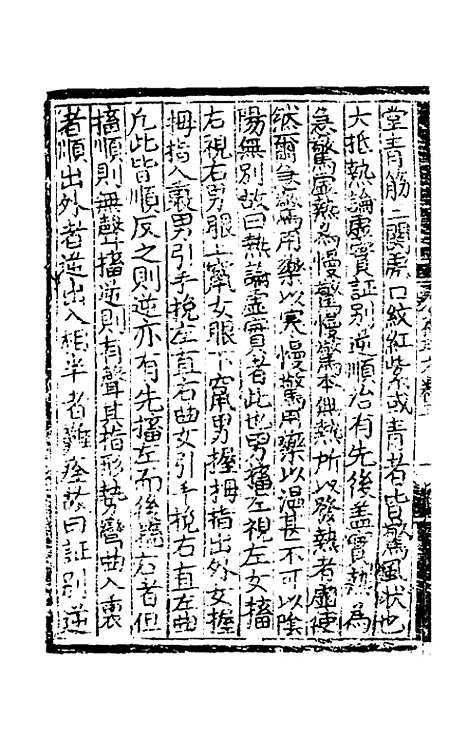 堂青筋三關虎口紋紅紫或青者皆驚風狀也
大抵熱論虛實証別逆順治有先後盖實熱為
急驚虛熱為慢驚慢驚本無熱所以發熱者虛使
然爾急驚用藥以寒慢驚用藥以溫甚不可以陰
陽無別故曰熱論虛實者此也男搐左視左女搐
右視右男眼上竄女眼下竄男握拇指出外女握
拇指入裏男引手挽左直右曲女引手挽右直左曲
凢此皆順反之則逆亦有先搐左而後雙右者但
搐順則無聲搐逆則有聲其指形勢彎曲入裏
者順出外者逆出入相半者難痊故曰証別逆